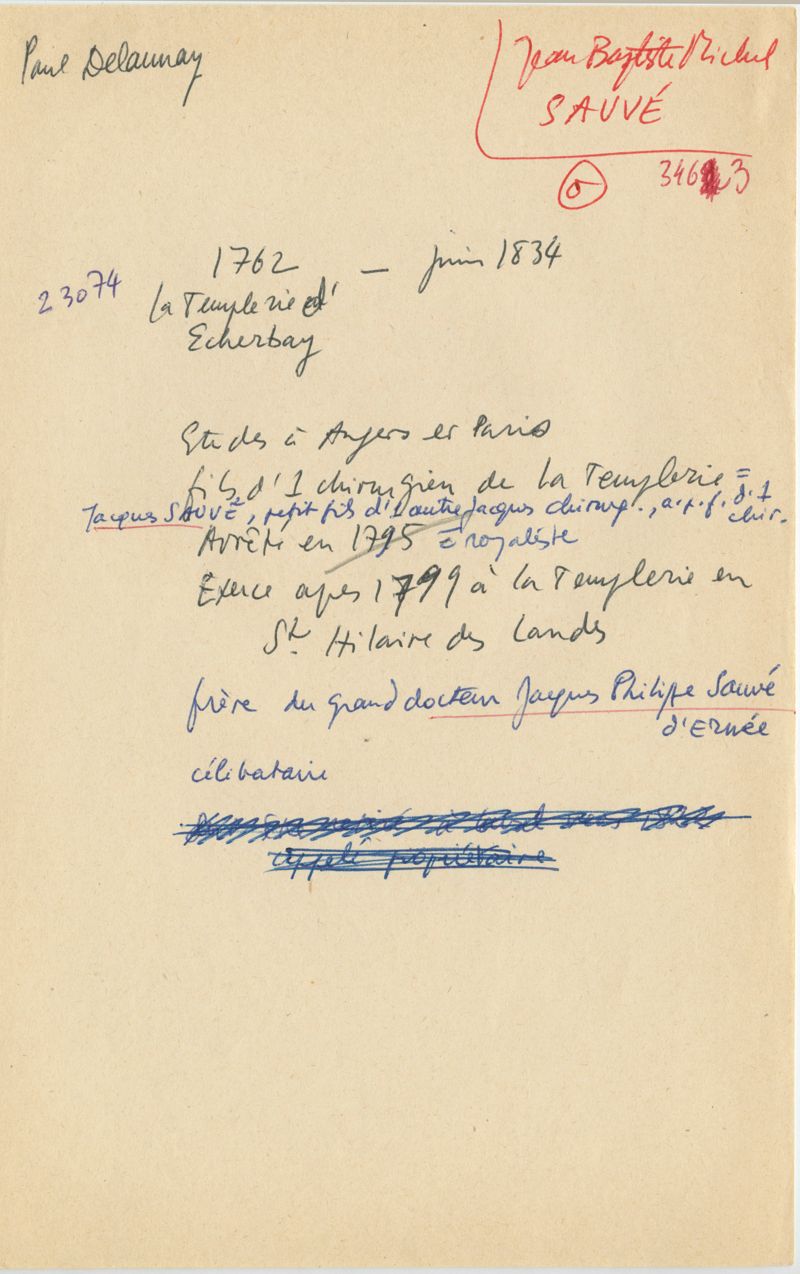 Paul Delaunay
Jean Baptiste Michel
SAUVÉ
346 3
1762 — juin 1834
23074
La Templerie d'
Echerbay
Etudes à Angers et Paris
fils d'1 chirurgien de la Templerie =
Jacques SAUVÉ, petit fils d'1 autre Jacques chirurg., a.p.f. d'1
chir.
Arrêté en 1795 = royaliste
Exerce apes 1799 à la Templerie en
St. Hilaire des Landes
frère du grand docteur Jacques Philippe Sauvé
d'Ernée
célibataire
appelé propriétaire